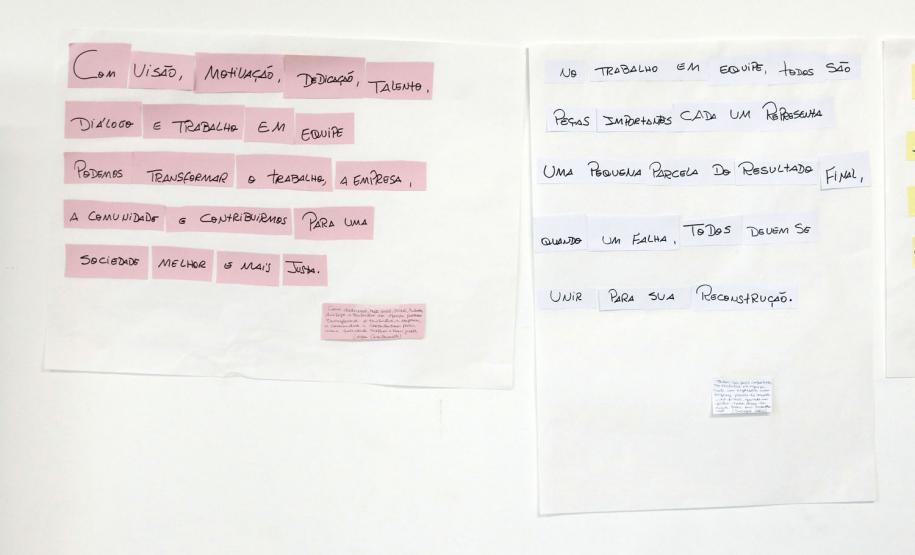 Com VISÃO, MOTIVAÇÃO, DEDICAÇÃO, TALENTO,
DIÁLOGO E TRABALHO EM EQUIPE
PODEMOS TRANSFORMAR O TRABALHO, A EMPRESA,
A COMUNIDADE E CONTRIBUIRMOS PARA UMA
SOCIEDADE MELHOR E MAIS JUSTA.
NO TRABALHO EM EQUIPE, TODOS SÃO
PEÇAS IMPORTANTES CADA UM REPRESENTA
UMA PEQUENA PARCELA DO RESULTADO FINAL,
QUANDO UM FALHA, TODOS DEVEM SE
UNIR PARA SUA RECONSTRUÇÃO.